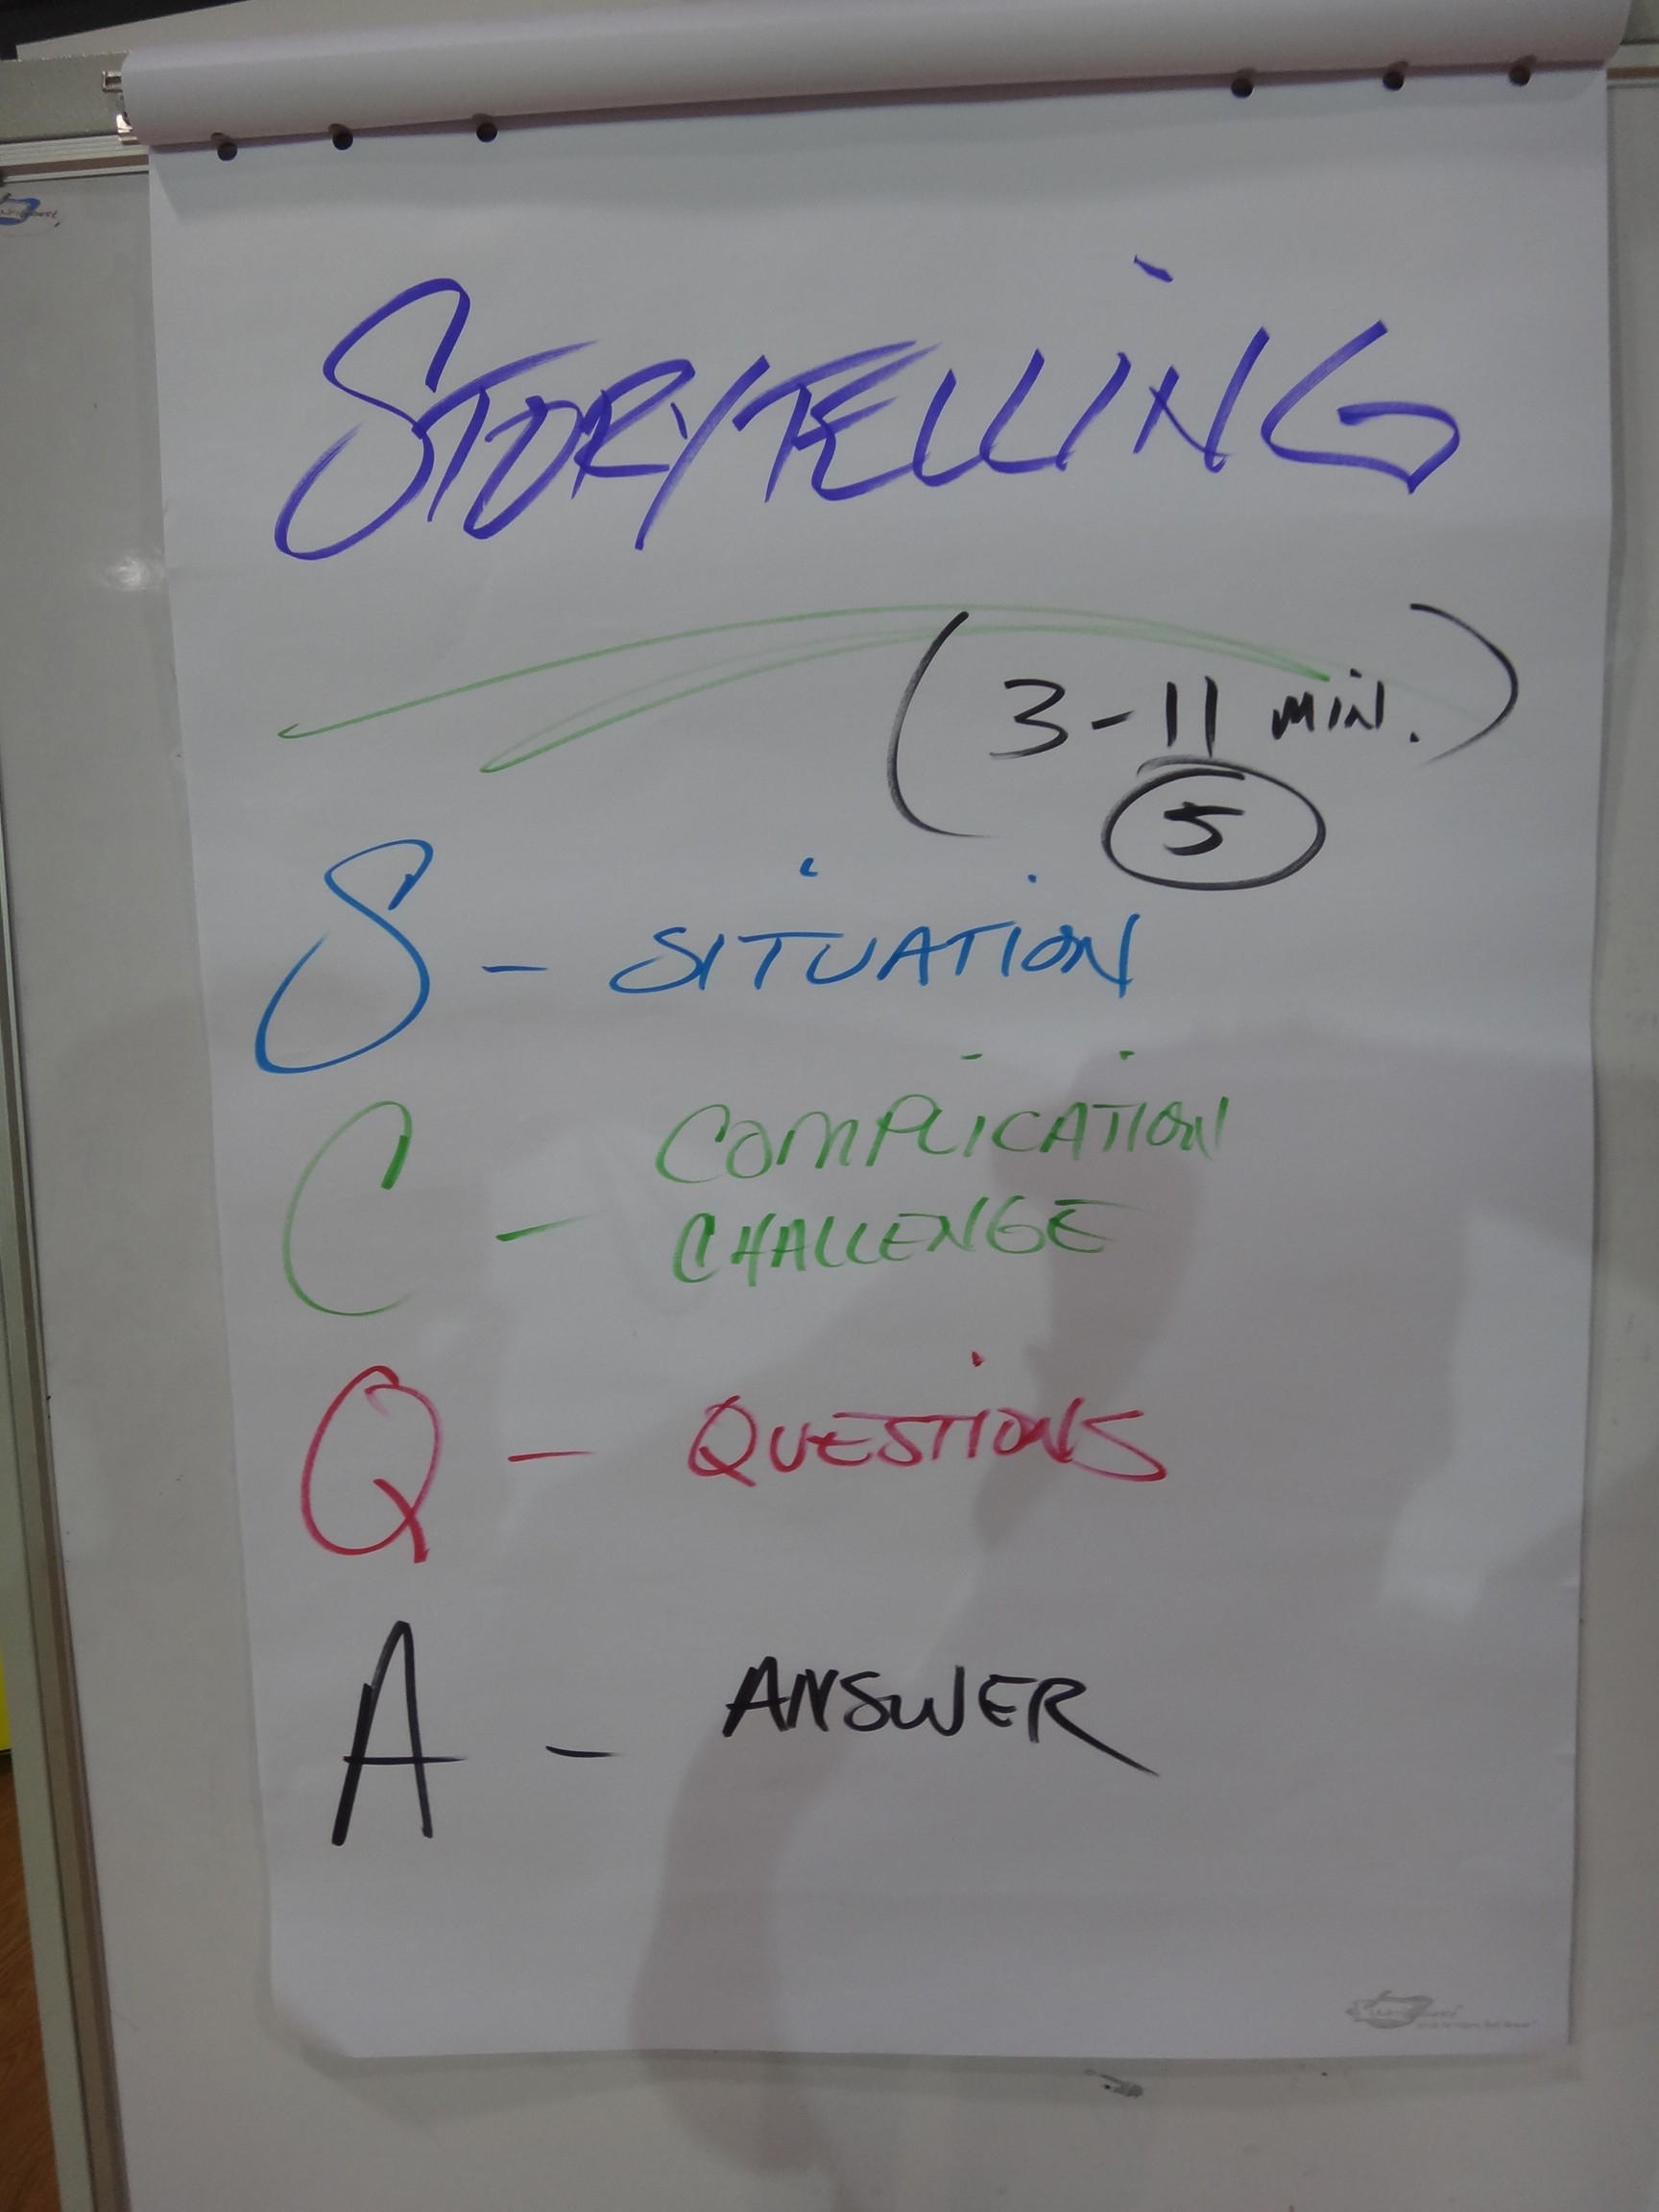 STORYTELLING
(3-11 min.)
5
S - SITUATION
C - COMPLICATION
CHALLENGE
Q - QUESTIONS
A - ANSWER